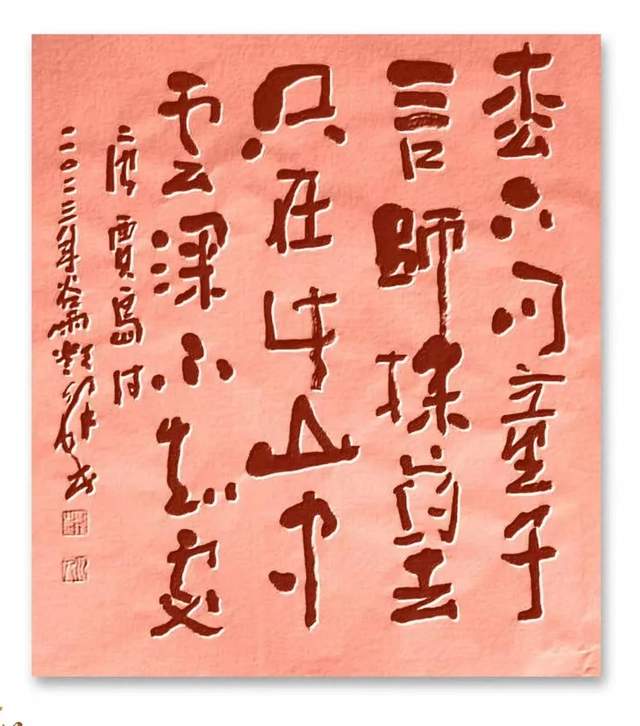 枩下问童子
言師採藥去
只在此山中
雲深不知處
唐賈島诗
二〇二三年